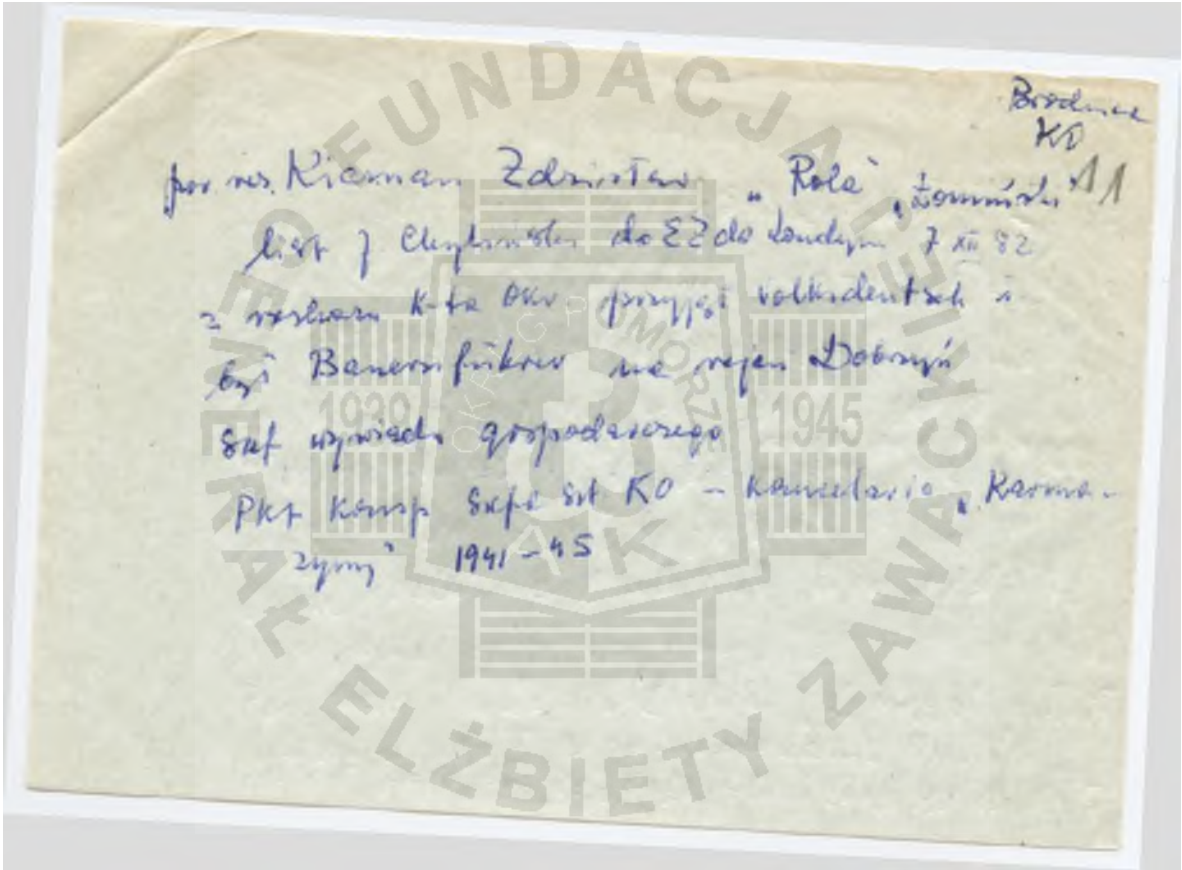 Brodnica
KO
11
por. rez. Kierman Zdzisław „Rola" „Łomiński"
list J Chyliński do EZ do Londynu 7 XII 82
z rozkazu K-ta Okr przyjął volksdeutsch i
był Bauernführer na rejon Dobrzyń
Szef wywiadu gospodarczego
Pkt Konsp Szefa Szt KO – Kancelaria „Karma-
zyny" 1941–45
FUNDACJA GENERAŁ ELŻBIETY ZAWACKIEJ
OKRĘG POMORZE
1939
1945
AK